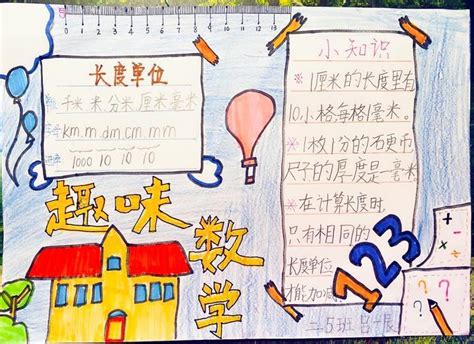 长度单位
千米 米 分米 厘米 毫米
km.m dm.cm.mm
进率 1000 10 10 10
趣味
数学
小知识
※1厘米的长度里有
10小格每格1毫米。
※1枚1分的硬币
尺子的厚度是一毫米
※在计算长度时,
只有相同的
长度单位
才能加减
二5班
123
+ - × ÷
? ? ?